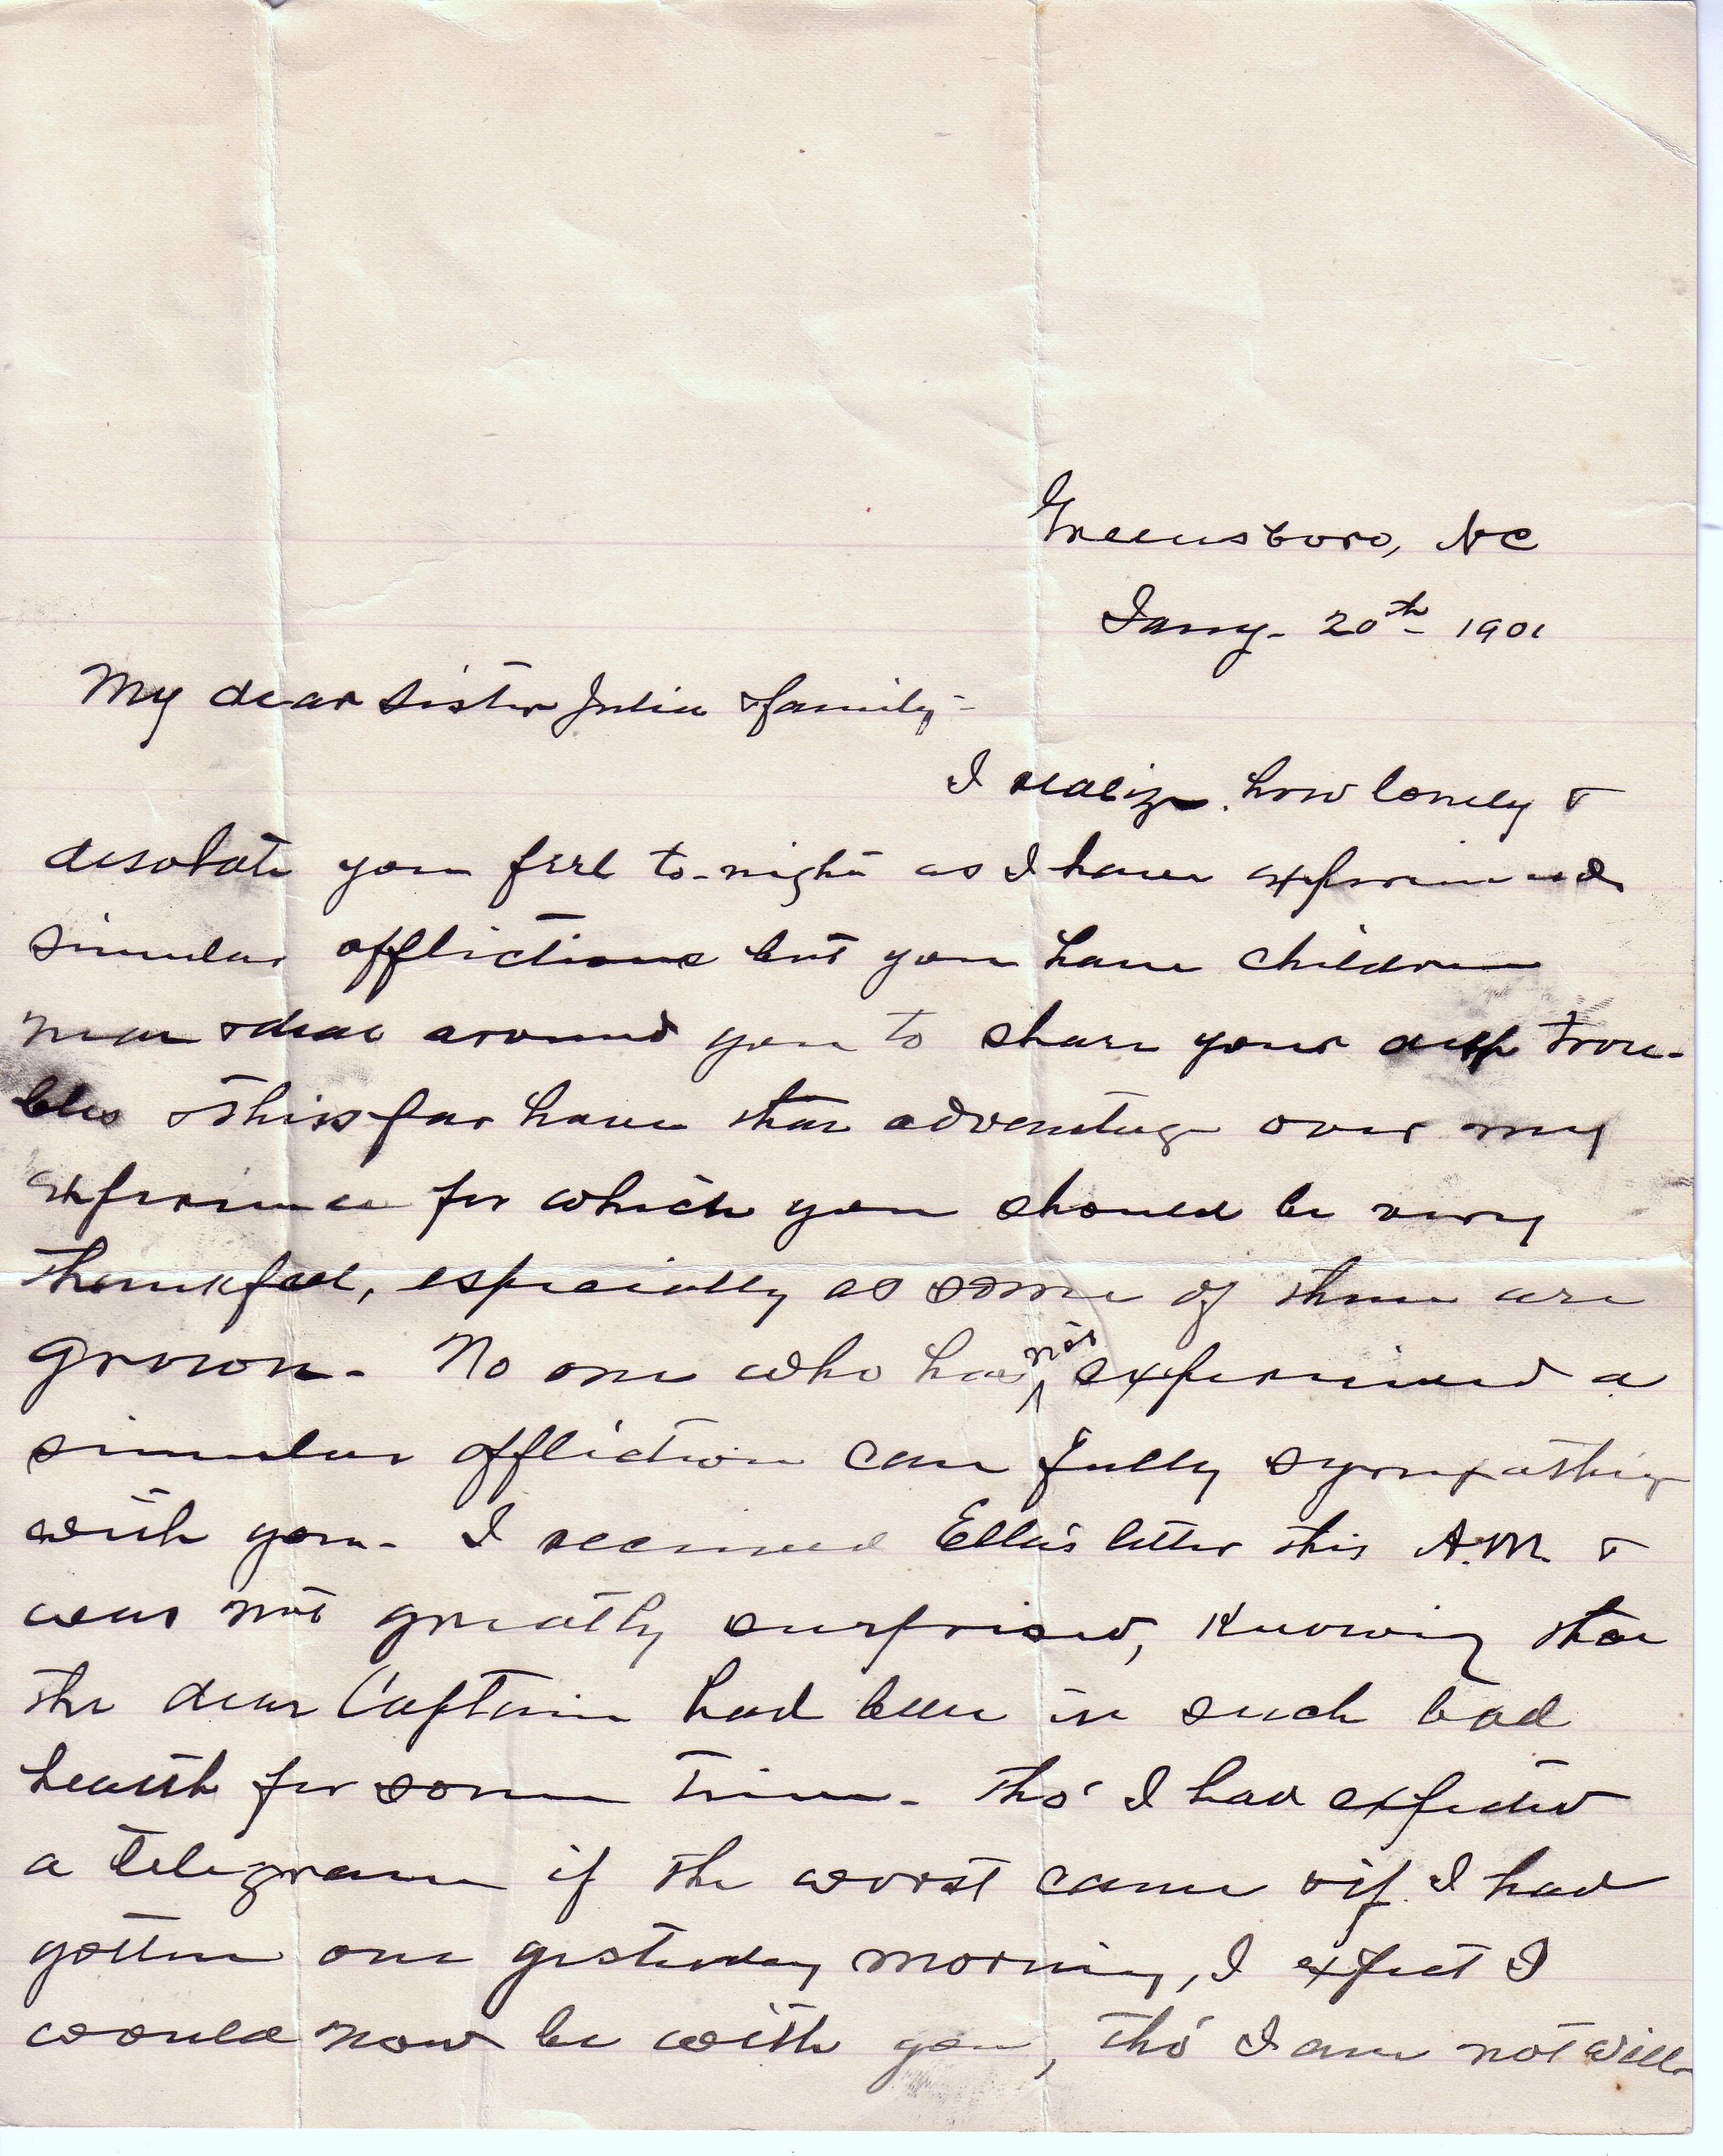 Greensboro, NC
Jany- 20th- 1901
My dear Sister Julia & family-
I realize how lonely &
desolate you feel to-night as I have experienced
simular afflictions but you have children
near & dear around you to share your deep trou-
bles & thus far have the advantage over my
experience for which you should be very
thankful, especially as some of them are
grown- No one who has not experienced a
simular affliction can fully sympathize
with you- I received Ella's letter this A.M. &
was not greatly surprised, knowing that
the dear Captain had been in such bad
health for some time- tho' I had expected
a telegram if the worst came & if I had
gotten one yesterday morning, I expect I
would now be with you, tho' I am not well